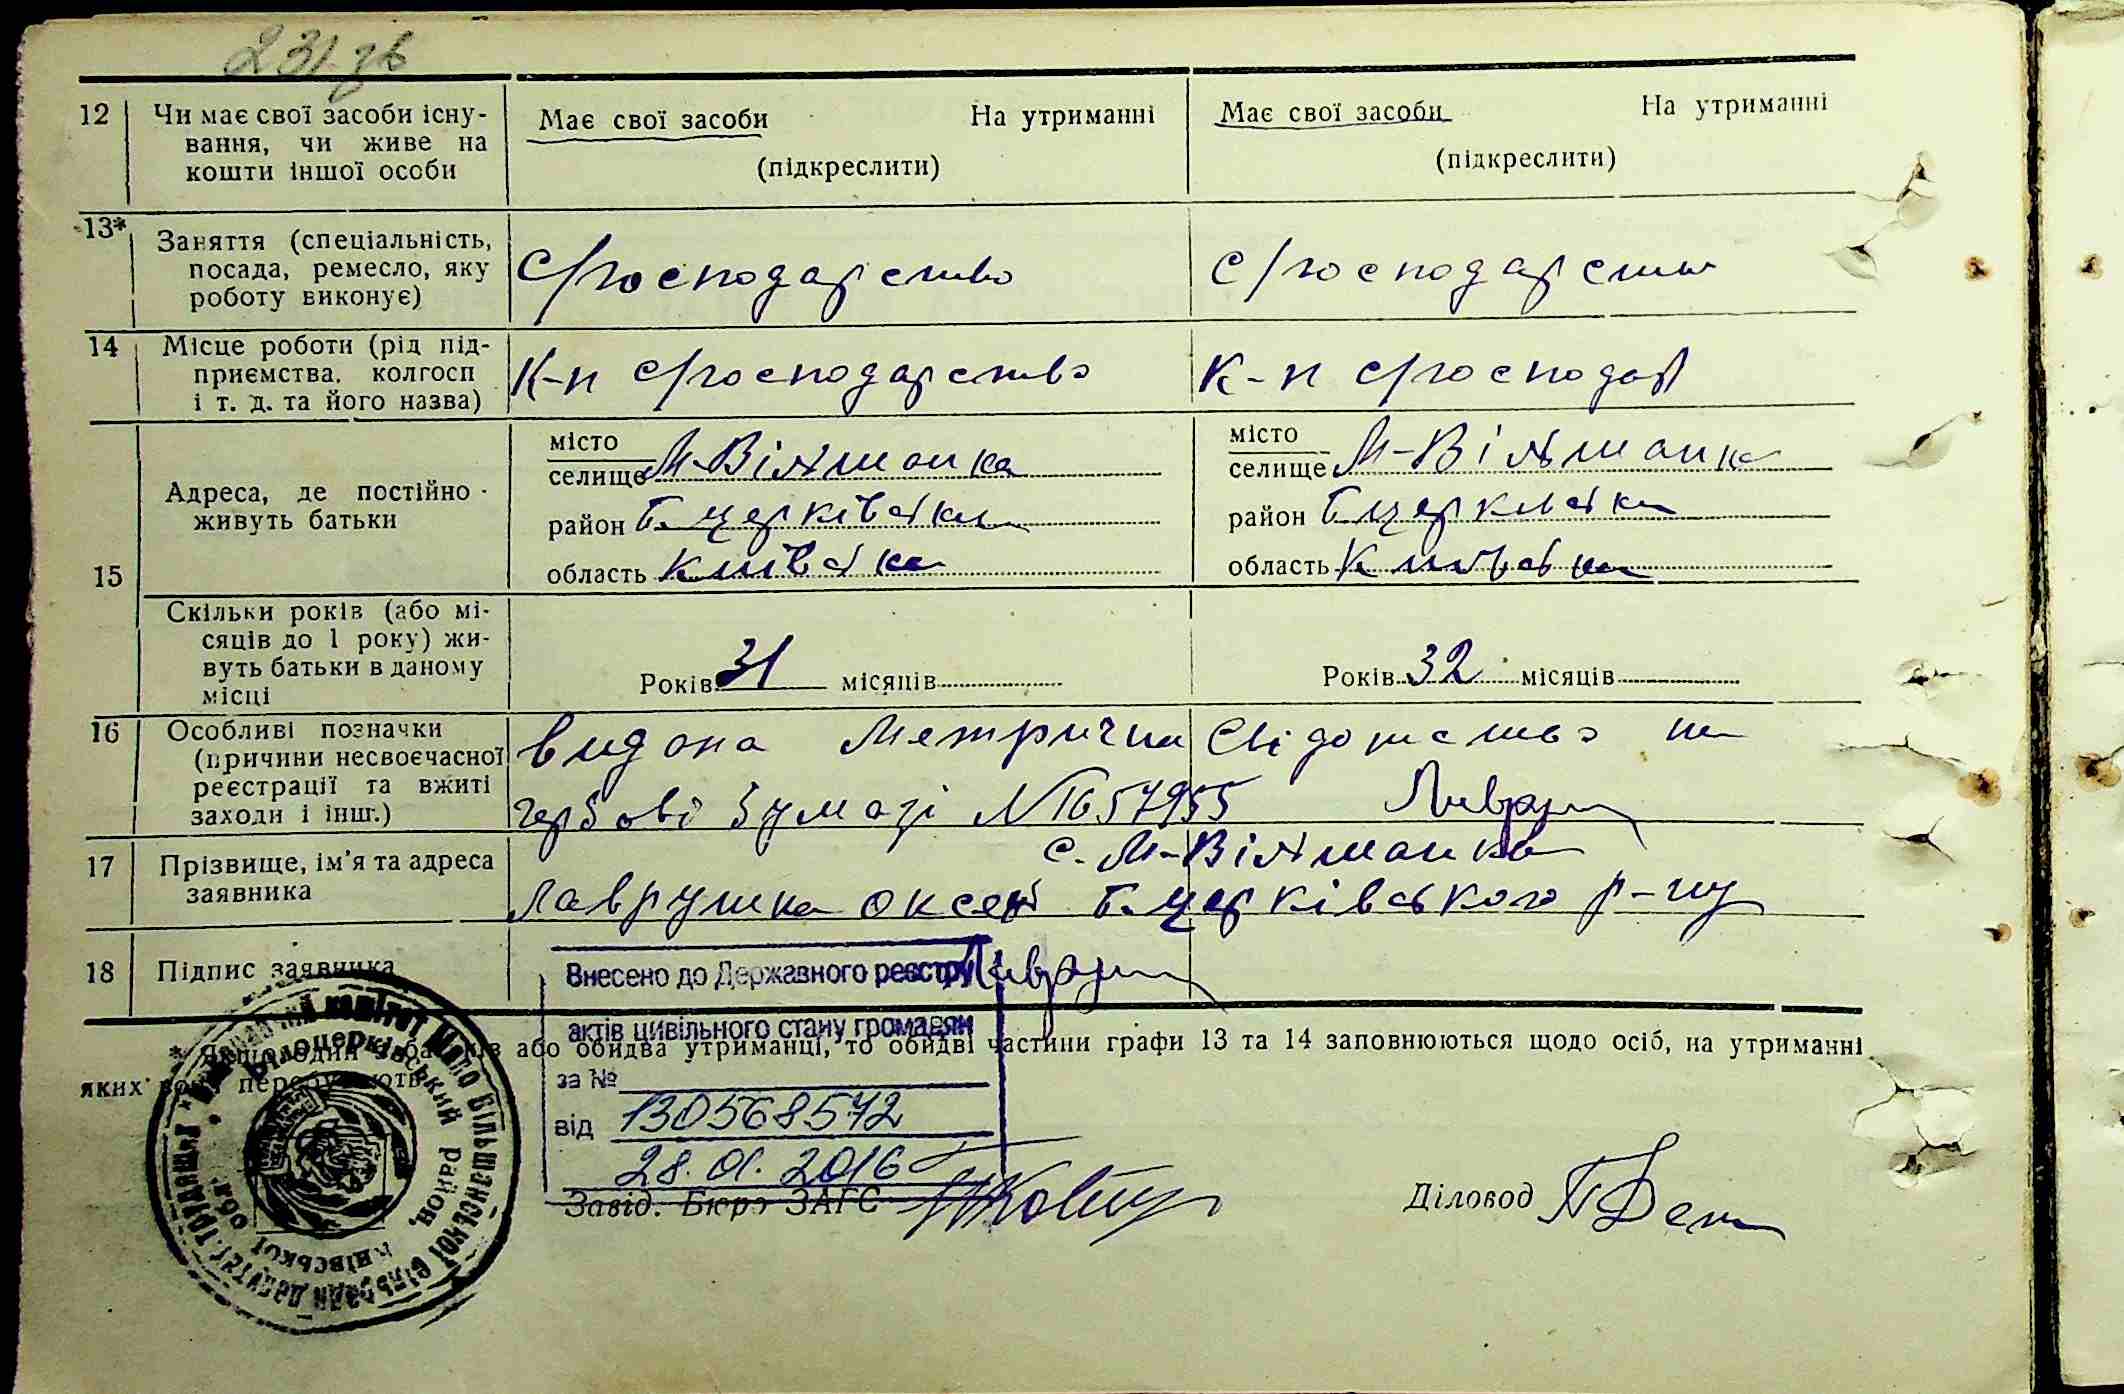 231 зв
12 Чи має свої засоби існу-
вання, чи живе на
кошти іншої особи
Має свої засоби На утриманні
(підкреслити)
Має свої засоби На утриманні
(підкреслити)
13* Заняття (спеціальність,
посада, ремесло, яку
роботу виконує)
С/господарство
с/господарство
14 Місце роботи (рід під-
приємства, колгосп
і т. д. та його назва)
К-п с/господарство
К-п с/господар
15 Адреса, де постійно
живуть батьки
місто
селище М-Вільшанка
район Б. церківська
область Київська
місто
селище М-Вільшанка
район Б церківська
область Київська
Скільки років (або мі-
сяців до 1 року) жи-
вуть батьки в даному
місці
Років 31 місяців
Років 32 місяців
16 Особливі позначки
(причини несвоєчасної
реєстрації та вжиті
заходи і інш.)
видана Метрична Свідотство на
гербові бумазі № 1657955
17 Прізвище, ім'я та адреса
заявника
с. М-Вільшанка
Лаврушка Оксен Б. церківського р-ну
18 Підпис заявника
Внесено до Державного реєстру
актів цивільного стану громадян
за №
від 130568572
28.01.2016
* Якщо один з батьків або обидва утриманці, то обидві частини графи 13 та 14 заповнюються щодо осіб, на утриманні
яких вони перебувають.
Завід. Бюро ЗАГС
Діловод
Виконавчий комітет Мало Вільшанської сільради депутатів трудящих
Білоцерківський район, Київської обл.